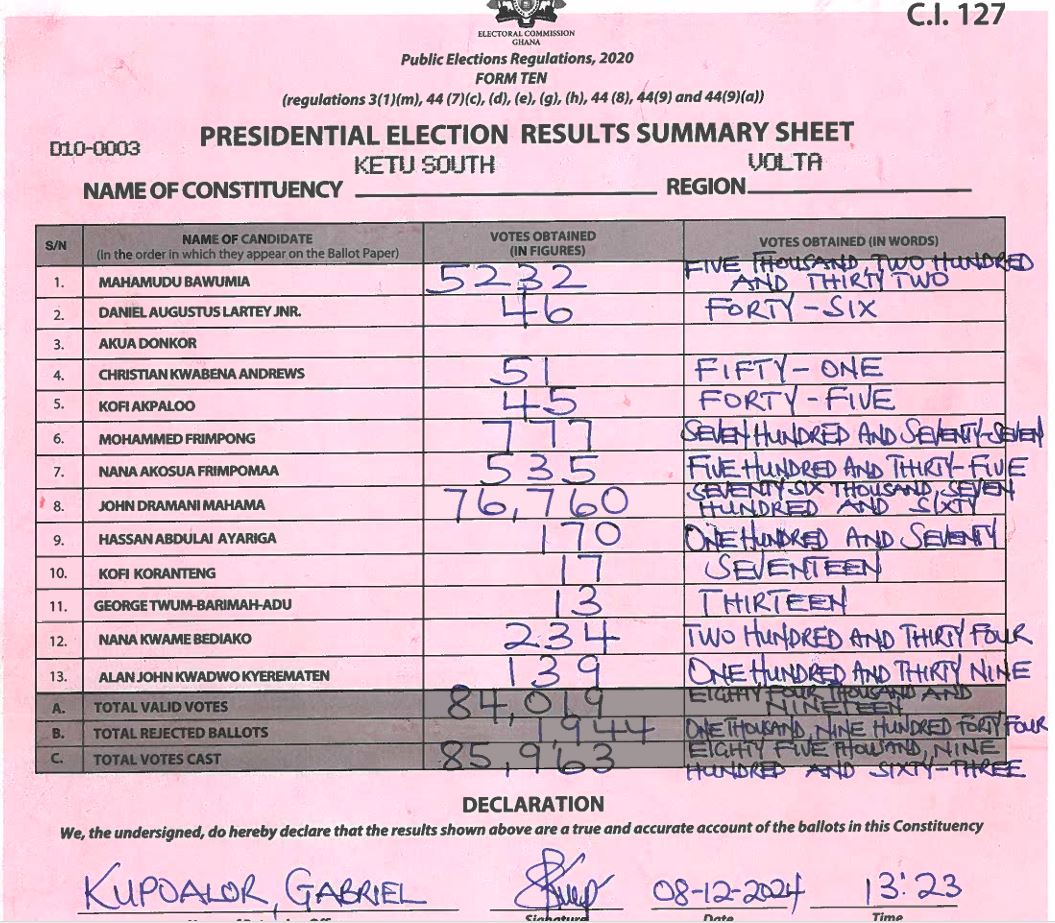 C.I. 127
ELECTORAL COMMISSION
GHANA
Public Elections Regulations, 2020
FORM TEN
(regulations 3(1)(m), 44 (7)(c), (d), (e), (g), (h), 44 (8), 44(9) and 44(9)(a))
PRESIDENTIAL ELECTION RESULTS SUMMARY SHEET
D10-0003
KETU SOUTH VOLTA
NAME OF CONSTITUENCY REGION
S/N NAME OF CANDIDATE (in the order in which they appear on the Ballot Paper) VOTES OBTAINED (IN FIGURES) VOTES OBTAINED (IN WORDS)
1. MAHAMUDU BAWUMIA 5232 FIVE THOUSAND TWO HUNDRED AND THIRTY TWO
2. DANIEL AUGUSTUS LARTEY JNR. 46 FORTY-SIX
3. AKUA DONKOR
4. CHRISTIAN KWABENA ANDREWS 51 FIFTY-ONE
5. KOFI AKPALOO 45 FORTY-FIVE
6. MOHAMMED FRIMPONG 777 SEVEN HUNDRED AND SEVENTY-SEVEN
7. NANA AKOSUA FRIMPOMAA 535 FIVE HUNDRED AND THIRTY-FIVE
8. JOHN DRAMANI MAHAMA 76,760 SEVENTY SIX THOUSAND, SEVEN HUNDRED AND SIXTY
9. HASSAN ABDULAI AYARIGA 170 ONE HUNDRED AND SEVENTY
10. KOFI KORANTENG 17 SEVENTEEN
11. GEORGE TWUM-BARIMAH-ADU 13 THIRTEEN
12. NANA KWAME BEDIAKO 234 TWO HUNDRED AND THIRTY FOUR
13. ALAN JOHN KWADWO KYEREMATEN 139 ONE HUNDRED AND THIRTY NINE
A. TOTAL VALID VOTES 84,019 EIGHTY FOUR THOUSAND AND NINETEEN
B. TOTAL REJECTED BALLOTS 1,944 ONE THOUSAND, NINE HUNDRED FORTY FOUR
C. TOTAL VOTES CAST 85,963 EIGHTY FIVE THOUSAND, NINE HUNDRED AND SIXTY-THREE
DECLARATION
We, the undersigned, do hereby declare that the results shown above are a true and accurate account of the ballots in this Constituency
KUPOALOR, GABRIEL 08-12-2024 13:23
Signature Date Time